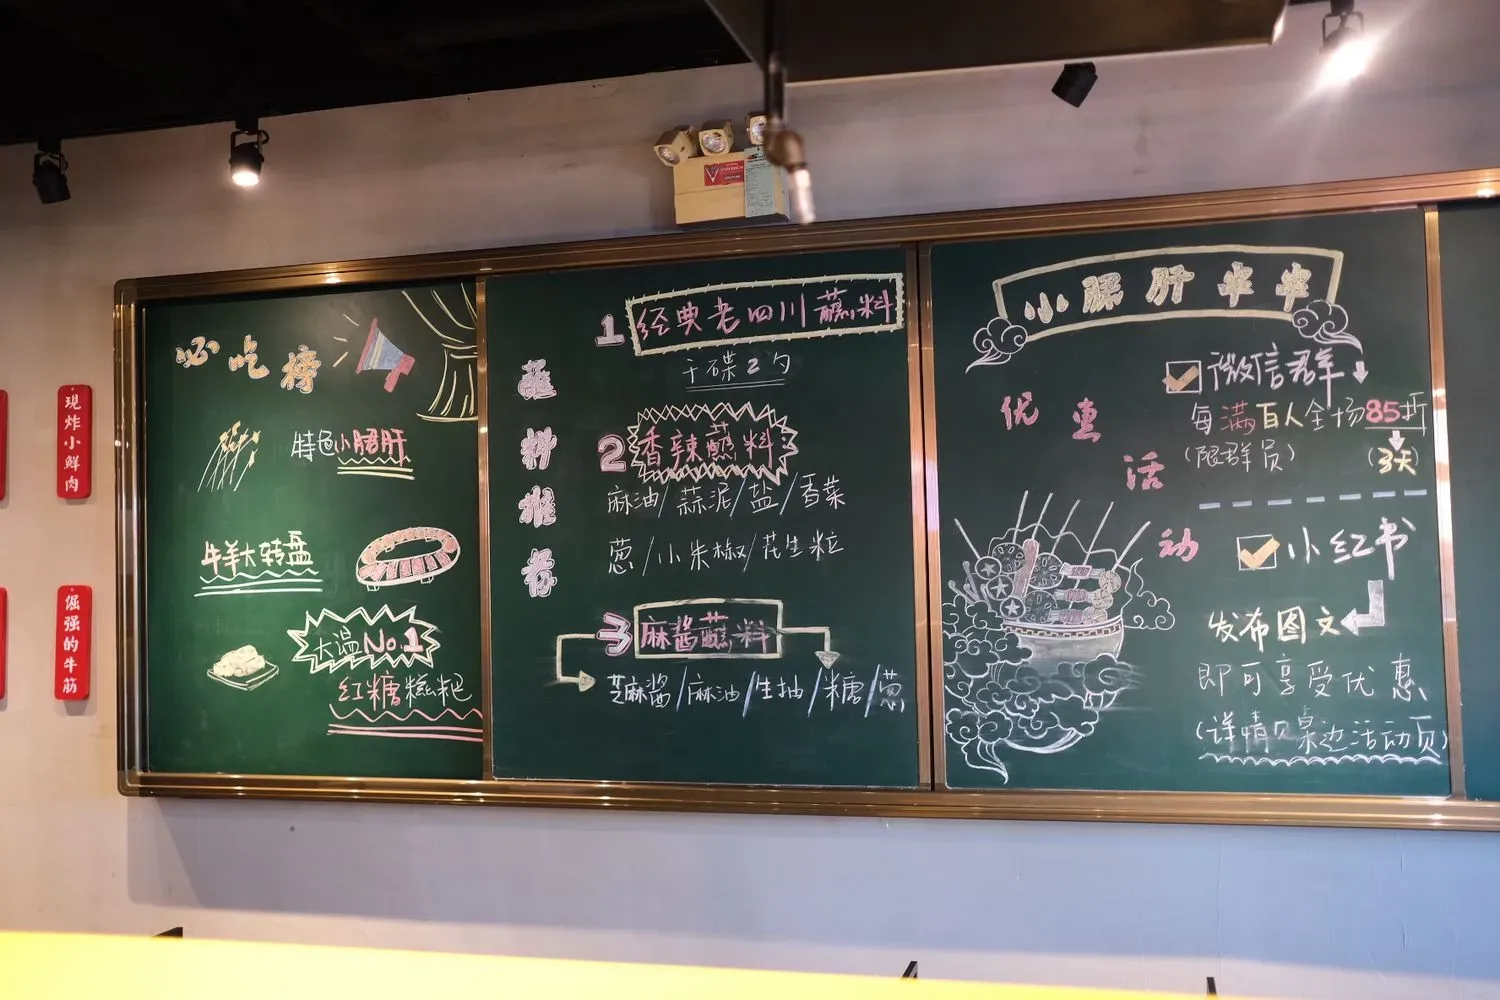 现炸小鲜肉
倔强的牛筋
必吃榜
特色小郡肝
牛羊大转盘
大温No.1
红糖糍粑
蘸料推荐
1 经典老四川蘸料
干碟2勺
2 香辣蘸料
麻油/蒜泥/盐/香菜
葱/小米椒/花生粒
3 麻酱蘸料
芝麻酱/麻油/生抽/糖/葱
小郡肝串串
优惠活动
微信群
每满百人全场85折
(限群员)
(3天)
小红书
发布图文
即可享受优惠
(详情见桌边活动页)